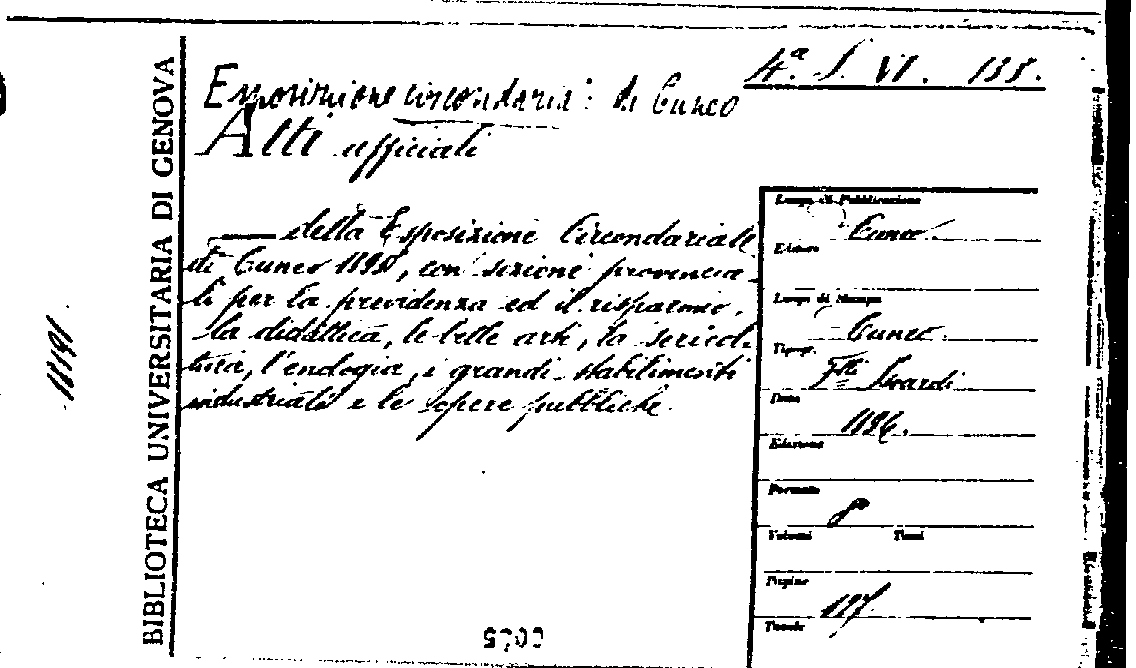 4ª. S. VI. 135.
Esposizione circondaria: di Cuneo
Atti ufficiali
— della Esposizione Circondariale
di Cuneo 1895, con sezioni provincia-
li per la previdenza ed il risparmio,
la didattica, le belle arti, la sericol-
tura, l'enologia, i grandi stabilimenti
industriali e le opere pubbliche.
BIBLIOTECA UNIVERSITARIA DI GENOVA
Luogo di Pubblicazione
Cuneo.
Editore
Luogo di Stampa
Cuneo.
Tipogr.
F.lli Isoardi
Data
1896.
Edizione
Formato
8º
Volumi Tomi
Pagine
197
Tavole